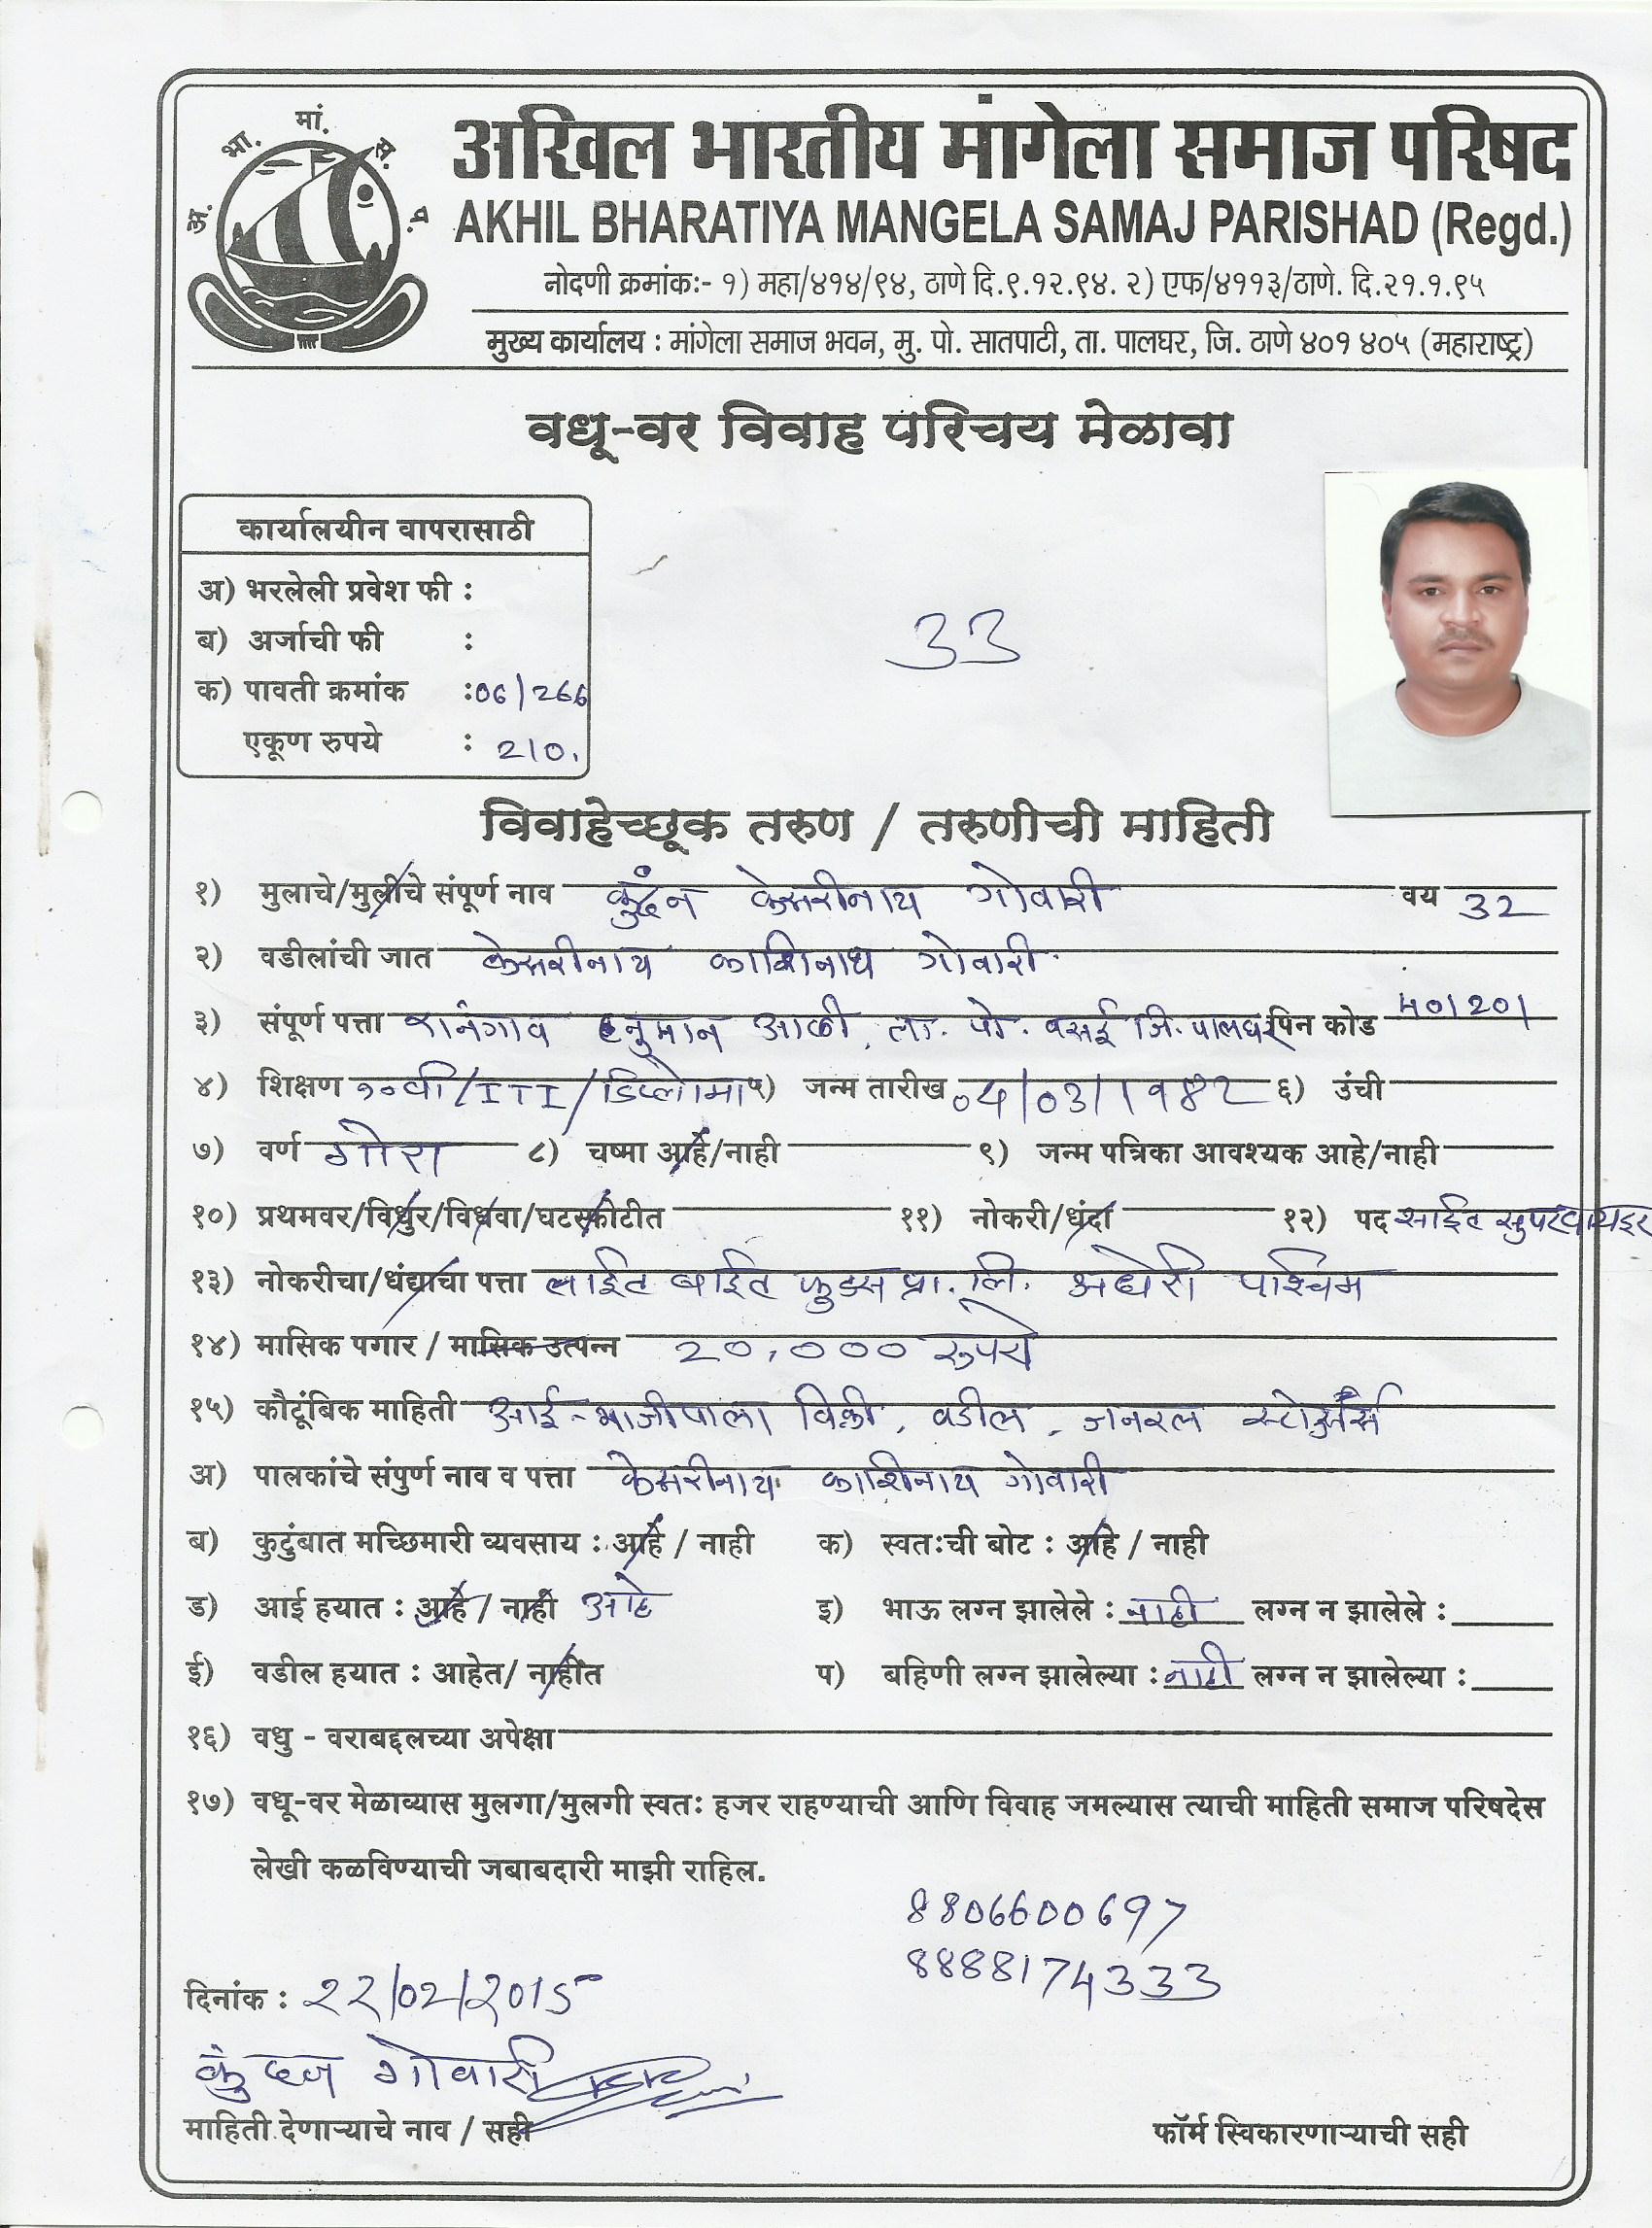 अ. भा. मां. स. प.
अखिल भारतीय मांगेला समाज परिषद
AKHIL BHARATIYA MANGELA SAMAJ PARISHAD (Regd.)
नोदणी क्रमांकः- १) महा/४१४/९४, ठाणे दि.९.१२.९४. २) एफ/४११३/ठाणे. दि.२१.१.९५
मुख्य कार्यालय : मांगेला समाज भवन, मु. पो. सातपाटी, ता. पालघर, जि. ठाणे ४०१ ४०५ (महाराष्ट्र)
वधू-वर विवाह परिचय मेळावा
कार्यालयीन वापरासाठी
अ) भरलेली प्रवेश फी :
ब) अर्जाची फी :
क) पावती क्रमांक :06/266
एकूण रुपये : 210.
33
विवाहेच्छूक तरुण / तरुणीची माहिती
१) मुलाचे/मुलीचे संपूर्ण नाव कुदंन केसरीनाथ गोवारी वय 32
२) वडीलांची जात केसरीनाथ काशिनाथ गोवारी
३) संपूर्ण पत्ता रानगाव हनुमान आळी, ता. पो. वसई जि. पालघर पिन कोड 401201
४) शिक्षण १०वी/ITI/डिप्लोमा ५) जन्म तारीख 04/03/1982 ६) उंची
७) वर्ण गोरा ८) चष्मा आहे/नाही ९) जन्म पत्रिका आवश्यक आहे/नाही
१०) प्रथमवर/विधुर/विधवा/घटस्फोटीत ११) नोकरी/धंदा १२) पद साईट सुपरवायझर
१३) नोकरीचा/धंद्याचा पत्ता लाईट बाईट फुडस प्रा. लि. अंधेरी पश्चिम
१४) मासिक पगार / मासिक उत्पन्न 20,000 रुपये
१५) कौटूंबिक माहिती आई-भाजीपाला विक्री, वडील, जनरल स्टोअर्स
अ) पालकांचे संपुर्ण नाव व पत्ता केसरीनाथ काशिनाथ गोवारी
ब) कुटुंबात मच्छिमारी व्यवसाय : आहे / नाही क) स्वतःची बोट : आहे / नाही
ड) आई हयात : आहे / नाही आहे इ) भाऊ लग्न झालेले : नाही लग्न न झालेले :
ई) वडील हयात : आहेत/ नाहीत प) बहिणी लग्न झालेल्या : नाही लग्न न झालेल्या :
१६) वधु - वराबद्दलच्या अपेक्षा
१७) वधू-वर मेळाव्यास मुलगा/मुलगी स्वतः हजर राहण्याची आणि विवाह जमल्यास त्याची माहिती समाज परिषदेस
लेखी कळविण्याची जबाबदारी माझी राहिल.
8806600697
8888174333
दिनांक : 22/02/2015
कुंदन गोवारी
माहिती देणाऱ्याचे नाव / सही
फॉर्म स्विकारणाऱ्याची सही